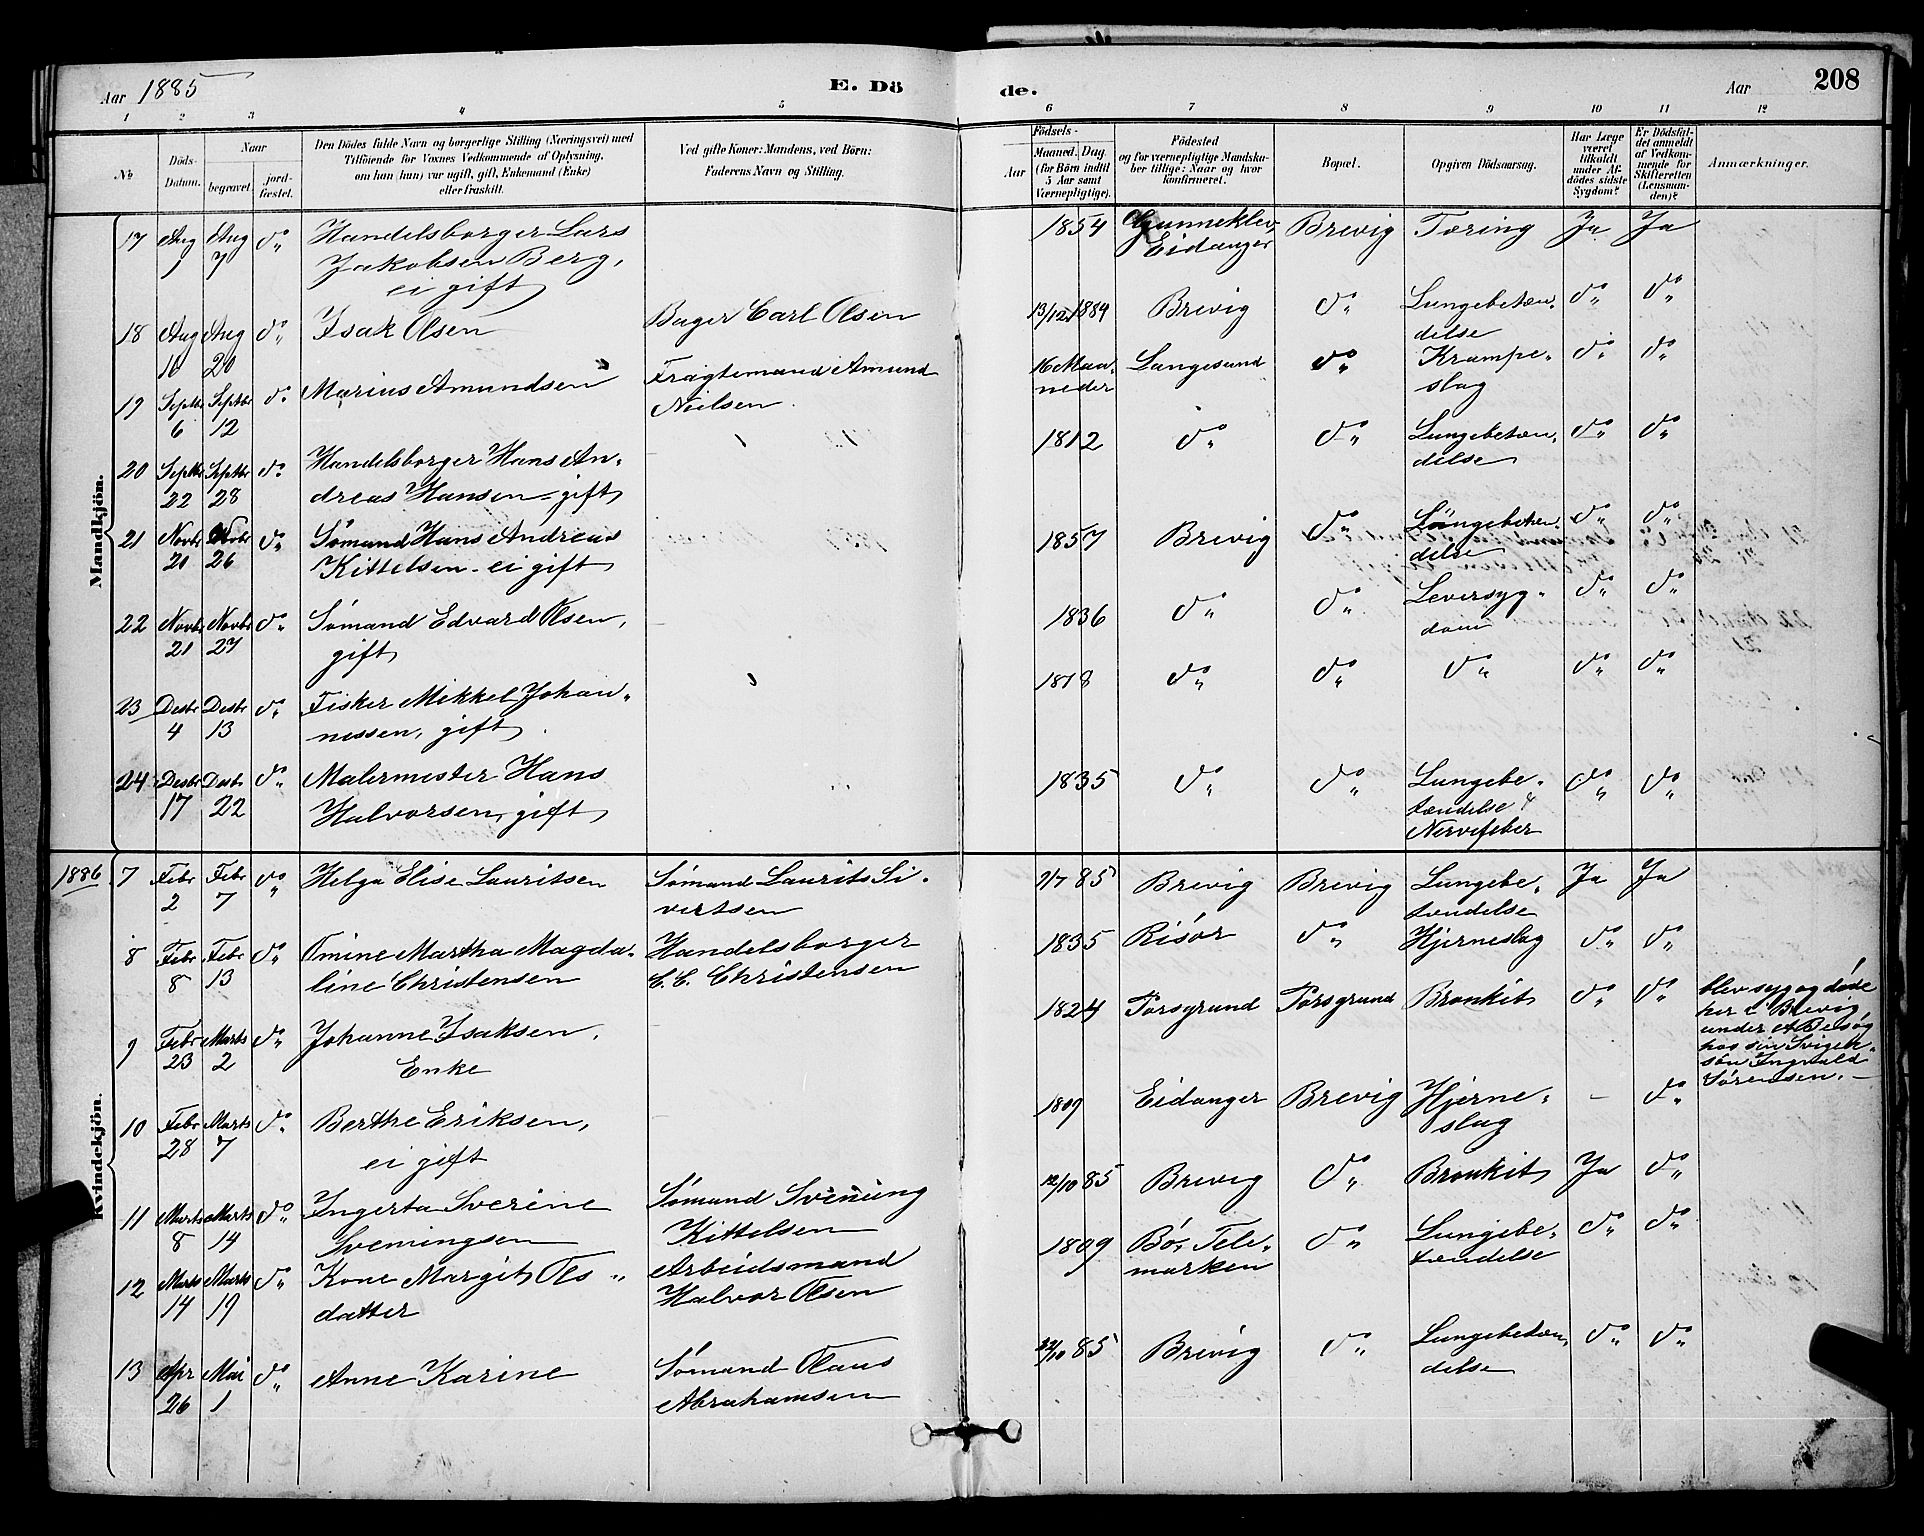 Aar 1885 E. Dö de. Aar 208
1 2 3 4 5 6 7 8 9 10 11 12
No Döds-Datum. Naar begravet. jordfæstet. Den Dödes fulde Navn og borgerlige Stilling (Næringsvei) med Tilföiende for Voxnes Vedkommende af Oplysning, om han (hun) var ugift, gift, Enkemand (Enke) eller fraskilt. Ved gifte Koner: Mandens, ved Börn: Faderens Navn og Stilling.
Födsels- Aar Maaned. Dag (for Börn indtil 5 Aar samt Værnepligtige). Födested og for værnepligtige Mandskaber tillige: Naar og hvor konfirmeret. Bopæl. Opgiven Dödsaarsag. Har Læge været tilkaldt under Afdödes sidste Sygdom? Er Dödsfaldet anmeldt af Vedkommende for Skifteretten (Lensmanden)? Anmærkninger.
Mandkjön.
17 Aug 1 Aug 7 do Handelsborger Lars
Jakobsen Berg,
ei gift
1854 Gunneklev, Eidanger Brevig Tæring Ja Ja
18 Aug 16 Aug 20 do Isak Olsen Bager Carl Olsen
13/12 1884 Brevig do Lungebetæn,
delse do do
19 Septbr 6 Septbr 12 do Marius Amundsen Fragtemand Amund
Nielsen.
16 Maa,
neder Langesund do Krampe,
slag do do
20 Septbr 22 Septbr 28 do Handelsborger Hans An,
dreas Hansen - gift
1812 do do Lungebetæn,
delse do do
21 Novbr 20 Novbr 26 do Sømand Hans Andreas
Kittelsen - ei gift
1857 Brevig do Lungebetæn,
delse do do
22 Novbr 21 Novbr 27 do Sømand Edvard Olsen,
gift
1836 do do Leversyg,
dom do do
23 Desbr 4 Desbr 13 do Fisker Mikkel Johan,
nessen, gift.
1818 do do do do do
24 Desbr 17 Desbr 22 do Malermester Hans
Halvorsen, gift
1835 do do Lungebe,
tændelse &
Nervefeber do do
1886
Kvindekjön.
7 Febr 2 Febr 7 do Helga Elise Lauritsen Sømand Laurits Si,
vertsen
2/7 85 Brevig Brevig Lungebe,
tændelse Ja Ja
8 Febr 8 Febr 13 do Omine Martha Magda,
line Christensen Handelsborger
C. C. Christensen
1835 Risør do Hjerneslag do do
9 Febr 23 Marts 2 do Johanne Isaksen,
Enke
1824 Porsgrund Porsgrund Bronkit do do blev syg og døde
her i Brevig
under et Besøg
hos sin Sviger,
søn Ingvald
Sørensen. -
10 Febr 28 Marts 7 do Berthe Eriksen,
ei gift
1809 Eidanger Brevig Hjerne,
slag - do
11 Marts 8 Marts 14 do Ingerta Sverine
Sveningsen Sømand Svenung
Kittelsen
12/10 85 Brevig do Bronkit Ja do
12 Marts 14 Marts 19 do Kone Margit Ols,
datter Arbeidsmand
Halvor Olsen
1809 Bø, Tele,
marken do Lungebe,
tændelse do do
13 Apr 26 Mai 1 do Anne Karine Sømand Olaus
Abrahamsen
22/10 85 Brevig do Lungebetæn,
delse do do